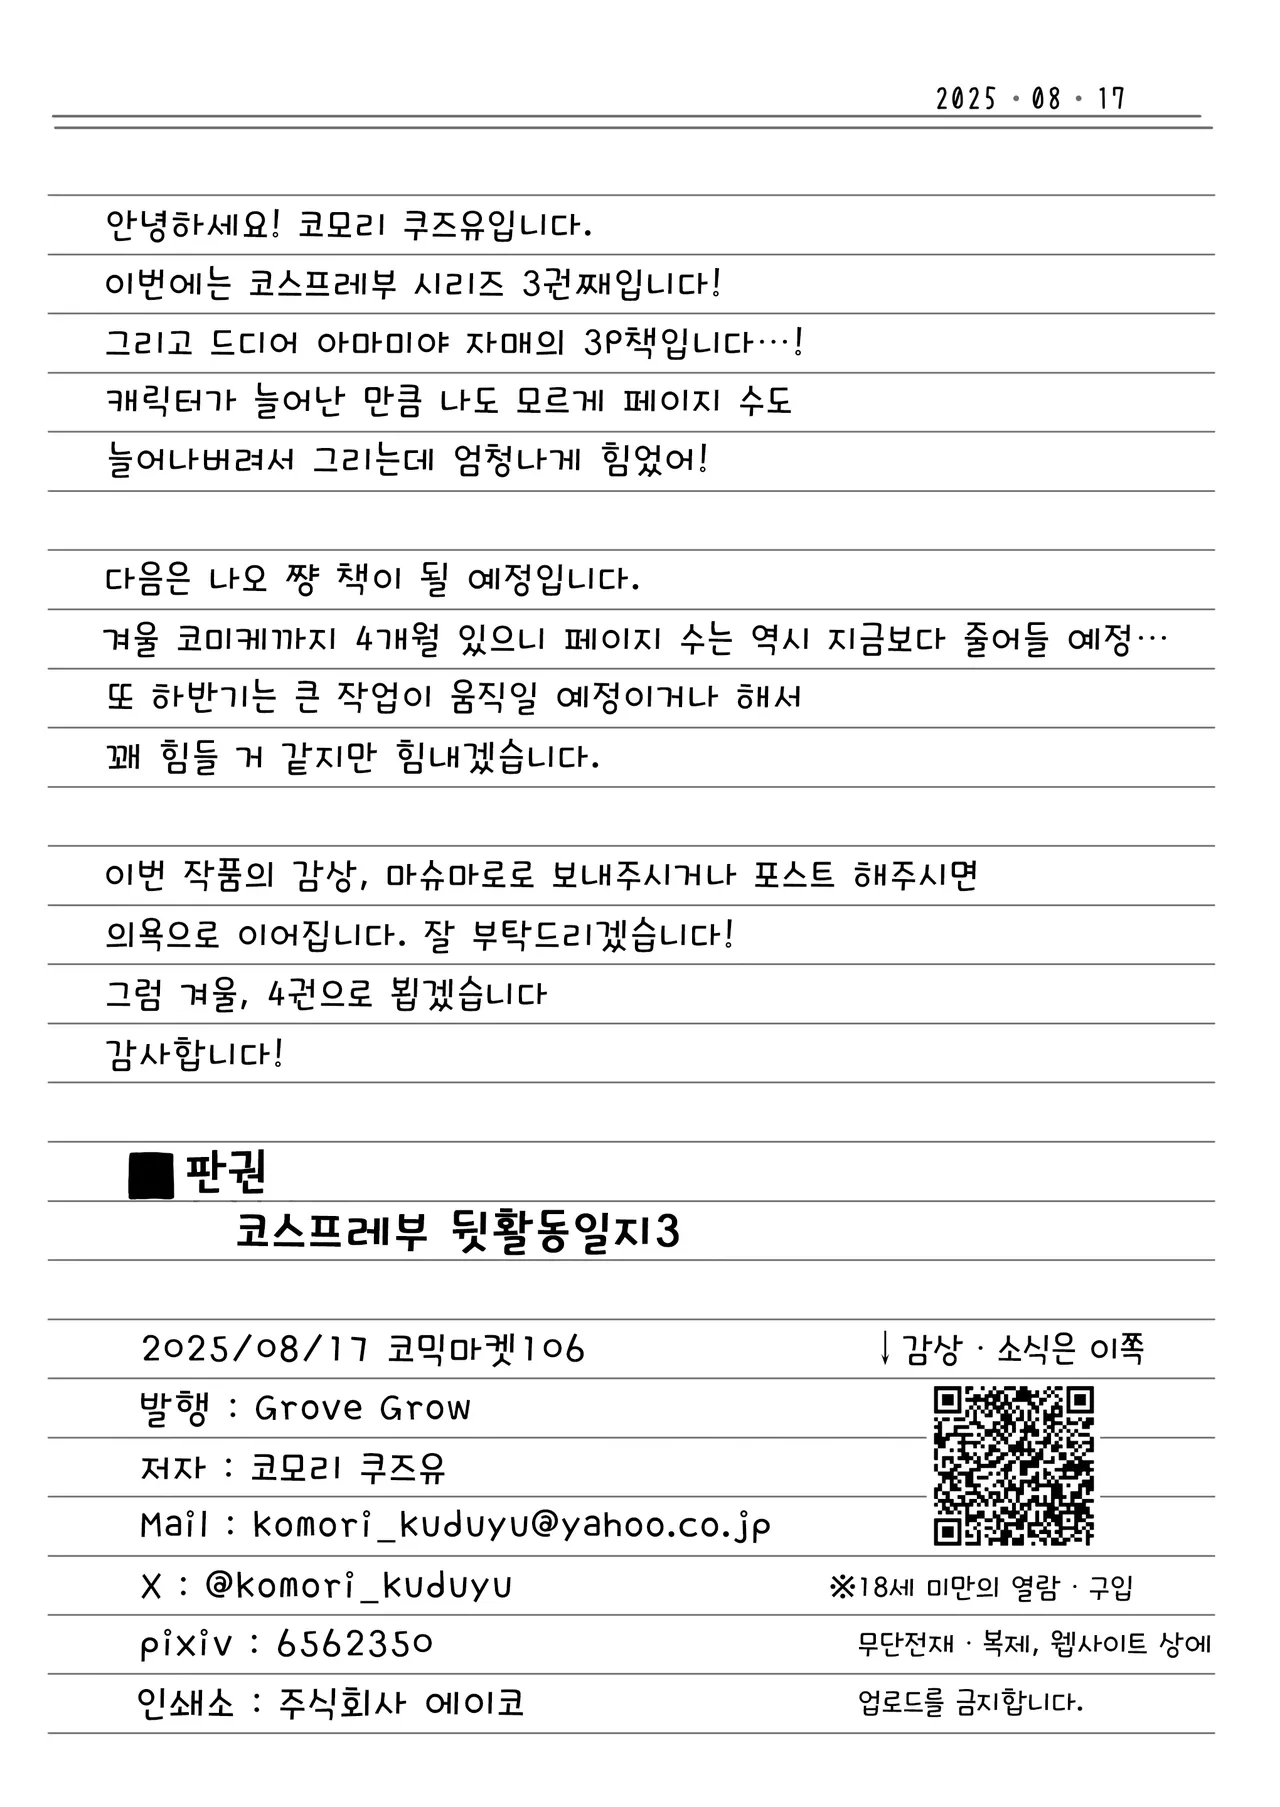 2025・08・17
안녕하세요! 코모리 쿠즈유입니다.
이번에는 코스프레부 시리즈 3권째입니다!
그리고 드디어 아마미야 자매의 3P책입니다…!
캐릭터가 늘어난 만큼 나도 모르게 페이지 수도
늘어나버려서 그리는데 엄청나게 힘었어!
다음은 나오 쨩 책이 될 예정입니다.
겨울 코미케까지 4개월 있으니 페이지 수는 역시 지금보다 줄어들 예정…
또 하반기는 큰 작업이 움직일 예정이거나 해서
꽤 힘들 거 같지만 힘내겠습니다.
이번 작품의 감상, 마슈마로로 보내주시거나 포스트 해주시면
의욕으로 이어집니다. 잘 부탁드리겠습니다!
그럼 겨울, 4권으로 뵙겠습니다
감사합니다!
■판권
코스프레부 뒷활동일지3
2025/08/17 코믹마켓106
↓감상・소식은 이쪽
발행 : Grove Grow
저자 : 코모리 쿠즈유
Mail : komori_kuduyu@yahoo.co.jp
X : @komori_kuduyu
※18세 미만의 열람・구입
pixiv : 6562350
무단전재・복제, 웹사이트 상에
인쇄소 : 주식회사 에이코
업로드를 금지합니다.